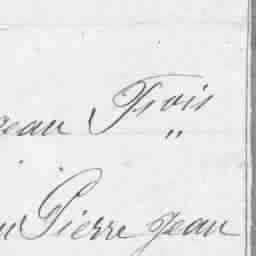 Jean Frois
"
Pierre Jean